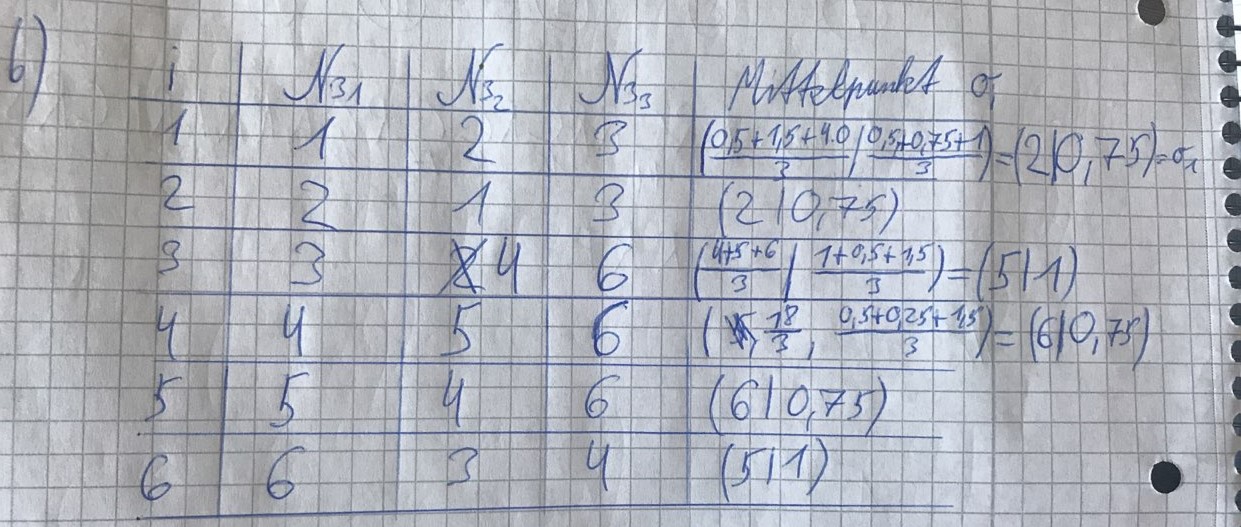 b)
i N31 N32 N33 Mittelpunkt σi
1 1 2 3 (0,5+1,5+4.0/3 | 0,5+0,75+1/3) = (2|0,75) = σ1
2 2 1 3 (2|0,75)
3 3 4 6 (4+5+6/3 | 1+0,5+1,5/3) = (5|1)
4 4 5 6 (18/3, 0,5+0,25+1,5/3) = (6|0,75)
5 5 4 6 (6|0,75)
6 6 3 4 (5|1)